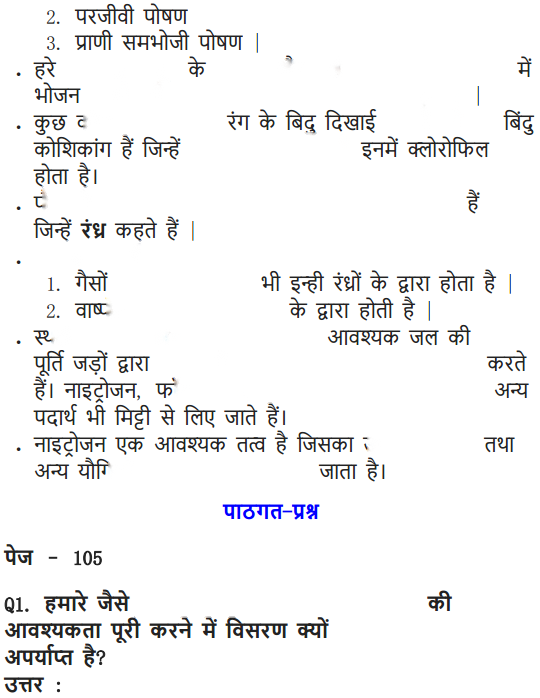 2. परजीवी पोषण
3. प्राणी समभोजी पोषण |
. हरे के में
भोजन |
. कुछ रंग के बिदु दिखाई बिंदु
कोशिकांग हैं जिन्हें इनमें क्लोरोफिल
होता है।
. हैं
जिन्हें रंध्र कहते हैं |
.
1. गैसों भी इन्ही रंध्रों के द्वारा होता है |
2. के द्वारा होती है |
. आवश्यक जल की
पूर्ति जड़ों द्वारा करते
हैं। नाइट्रोजन, अन्य
पदार्थ भी मिट्टी से लिए जाते हैं।
. नाइट्रोजन एक आवश्यक तत्व है जिसका तथा
अन्य जाता है।
पाठगत-प्रश्न
पेज - 105
Q1. हमारे जैसे की
आवश्यकता पूरी करने में विसरण क्यों
अपर्याप्त है?
उत्तर :